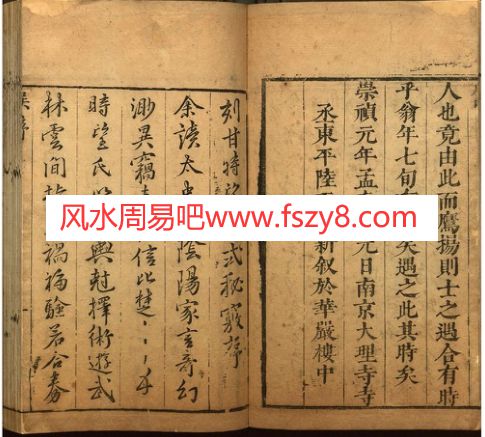 人也竟由此而鷹揚則士之遇合有時
乎翁年七旬矣遇之此其時矣
崇禎元年孟元日南京大理寺寺
丞東平陸新叙於華嚴樓中
刻甘時式秘竅序
余讀太史陰陽家言奇幻
渺異竊信比楚
時望氏輿尅擇術遊武
林雲間禍福驗若合券
风水周易吧www.fszy8.com